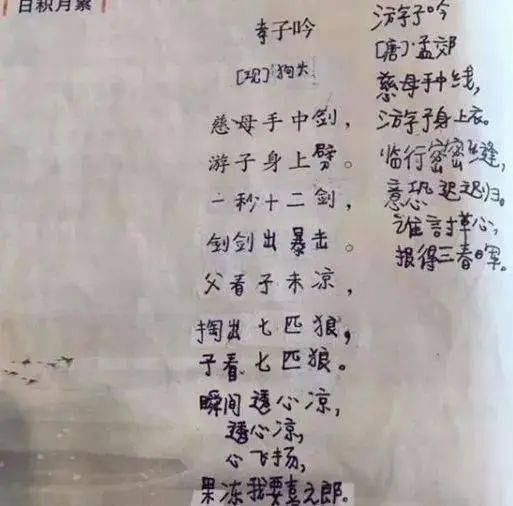 日积月累
孝子吟
[现]狗
慈母手中剑，
游子身上劈。
一秒十二剑，
剑剑出暴击。
父看子未凉，
掏出七匹狼，
子看七匹狼。
瞬间透心凉，
透心凉，
心飞扬，
果冻我要喜之郎。
游子吟
[唐]孟郊
慈母手中线，
游子身上衣。
临行密密缝，
意恐迟迟归。
谁討草心，
报得三春晖。